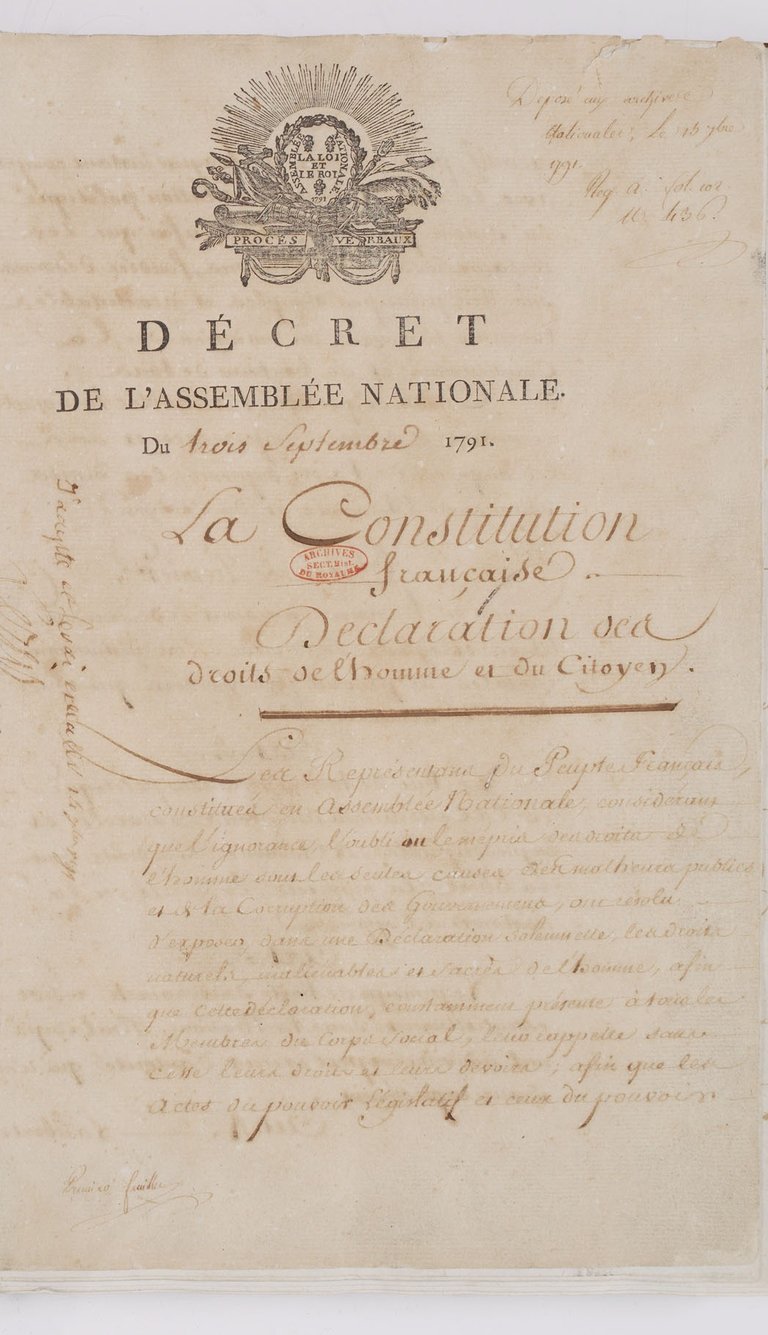 Déposé aux archives
Nationales, Le 15 7bre
1791.
Reg. A. fol. 102
N. 436.
ASSEMBLÉE NATIONALE
LA LOI
ET
LE ROI
1791
PROCÈS VERBAUX
DÉCRET
DE L'ASSEMBLÉE NATIONALE.
Du trois Septembre 1791.
La Constitution
française.
ARCHIVES
SECT. Hist.
DU ROYAUME
Déclaration des
droits de l'homme et du Citoyen.
J'accepte et ferai exécuter 14 7bre 1791
Les Représentans du Peuple Français,
constitués en Assemblée Nationale, considérant
que l'ignorance, l'oubli ou le mépris des droits de
l'homme sont les seules causes des malheurs publics
et de la Corruption des Gouvernemens, ont résolu
d'exposer, dans une Déclaration solemnelle, les droits
naturels, inaliénables et sacrés de l'homme, afin
que cette déclaration, constamment présente à tous les
Membres du Corps Social, leur rappelle sans
cesse leurs droits et leurs devoirs; afin que les
Actes du pouvoir Législatif et ceux du pouvoir
Premier feuillet